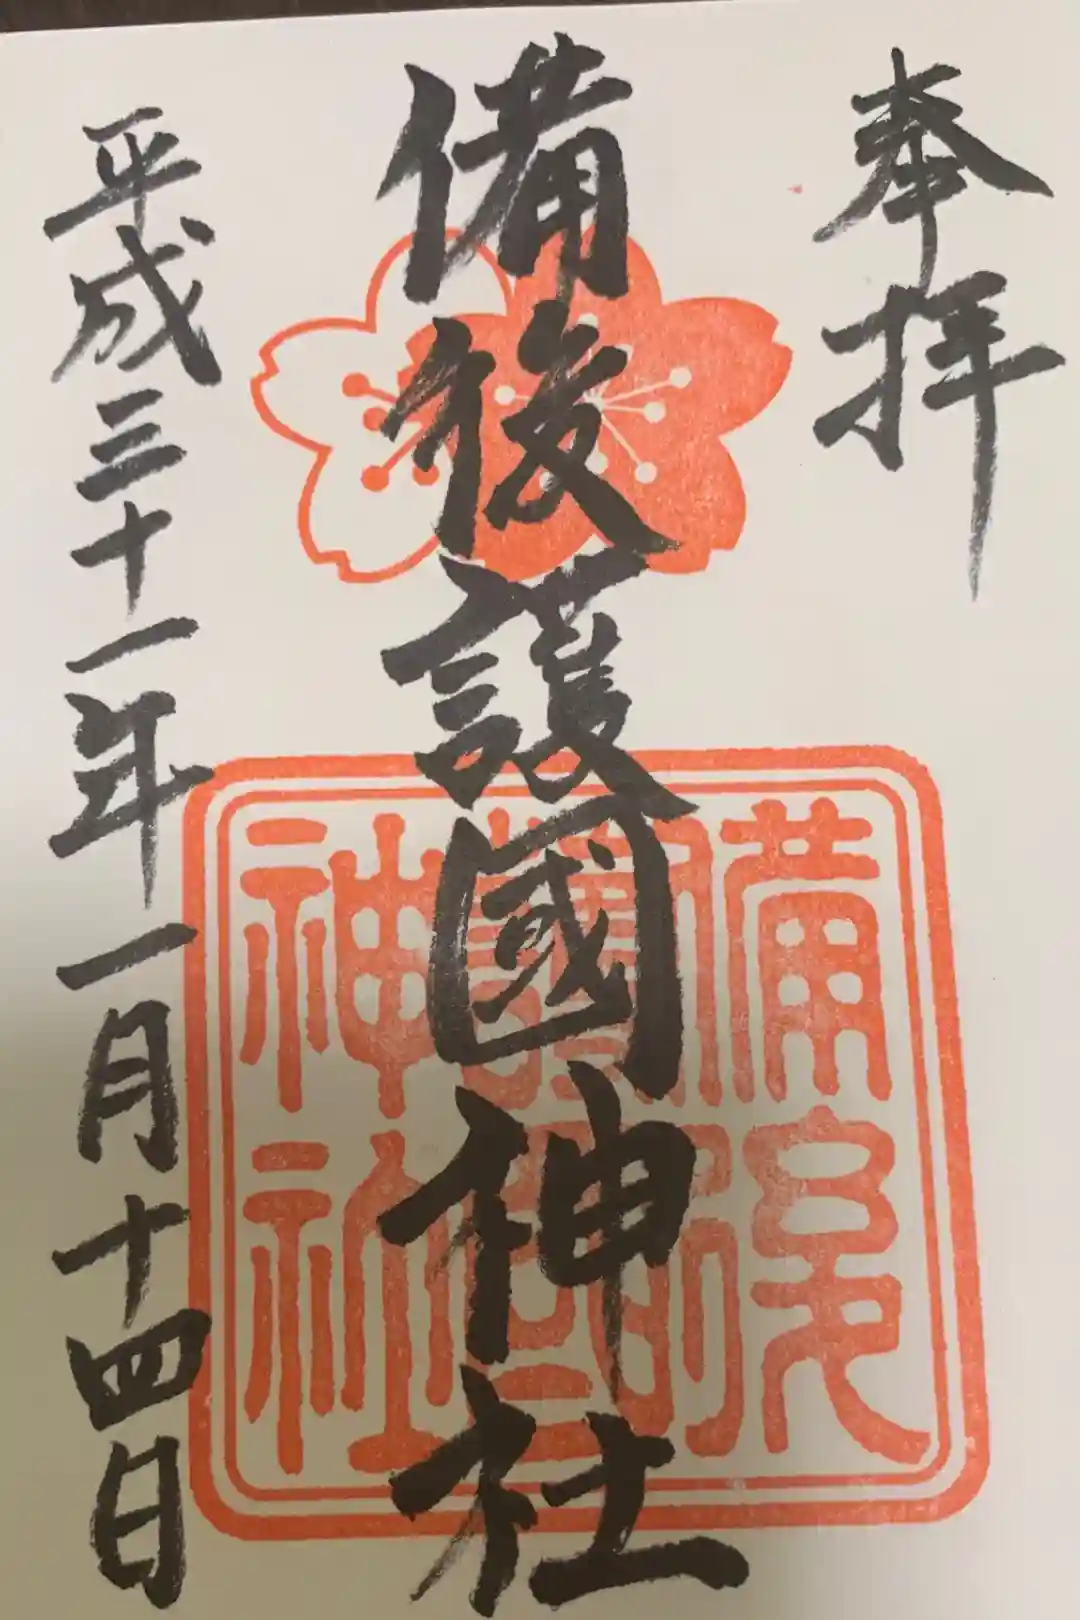 奉拝
備後護國神社
平成三十一年一月十四日
備後
護國
神社